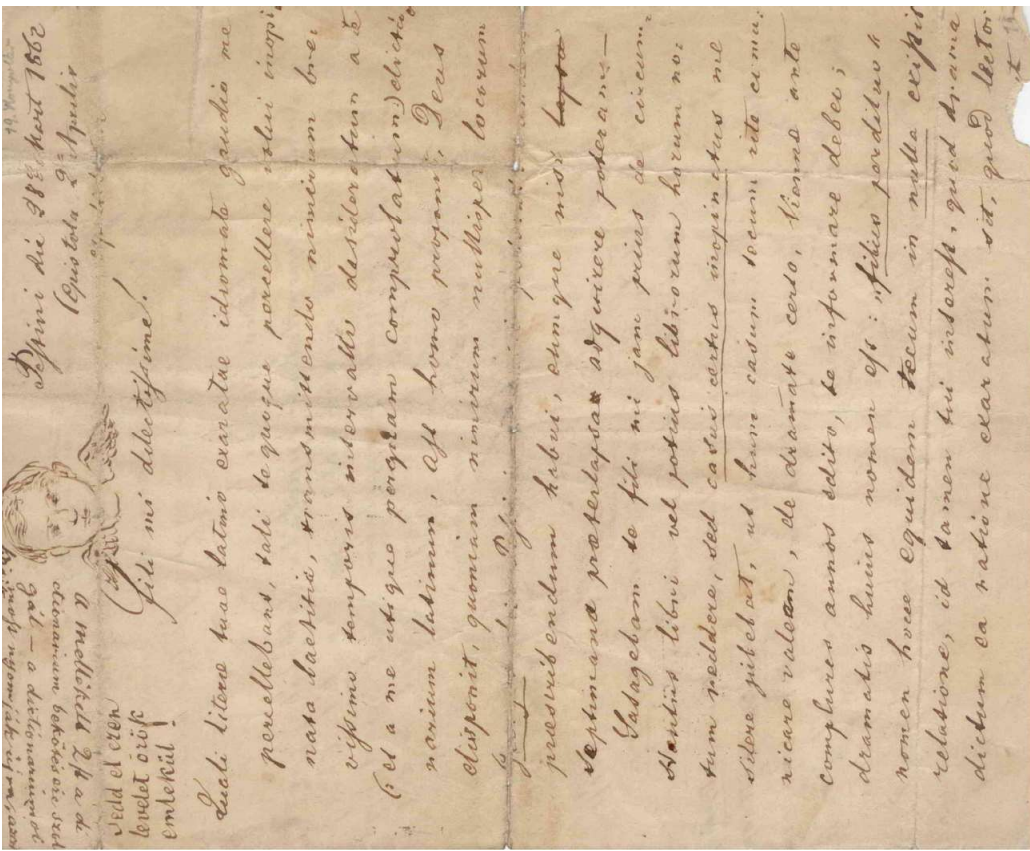 die 28 1862
Epistola 2ª Aprilis
A mellékelt 2 k a dic
tionarium bekötésére szol
gál – a dictionariumot
most nyomják
Tedd el ezen
levelet örök
emlékül!
Fili mi dilectissime!
Quali literae tuae latino exaratae idiomate gaudio me
percellebant, tali te quoque percellere volui inopi
nata laetitia, transmittendo nimirum bre=
vissimo temporis intervallo desideratum a te
(et a me utique perquam comprobatum) dictio
narium latinum, ast homo proponit, Deus
disponit, quoniam nimirum nullisper locorum
praescribendum habui, eumque nisi lapsa
septimana praeterlapsa adquirere poteram—
Satagebam te fili mi jam prius de circum=
stantiis libri vel potius librorum horum no=
tum reddere, sed casus certus inopinatus me
sidere jubebat, ut hunc casum tecum rite comu=
nicare valeam, de dramate certo, Viennae ante
complures annos edito, te informare debeo;
dramatis huius nomen est: „filius perditus"
nomen hocce equidem tecum in nulla existit
relatione, id tamen tui interest, quod drama
dictum ea ratione exaratum sit, quod lector